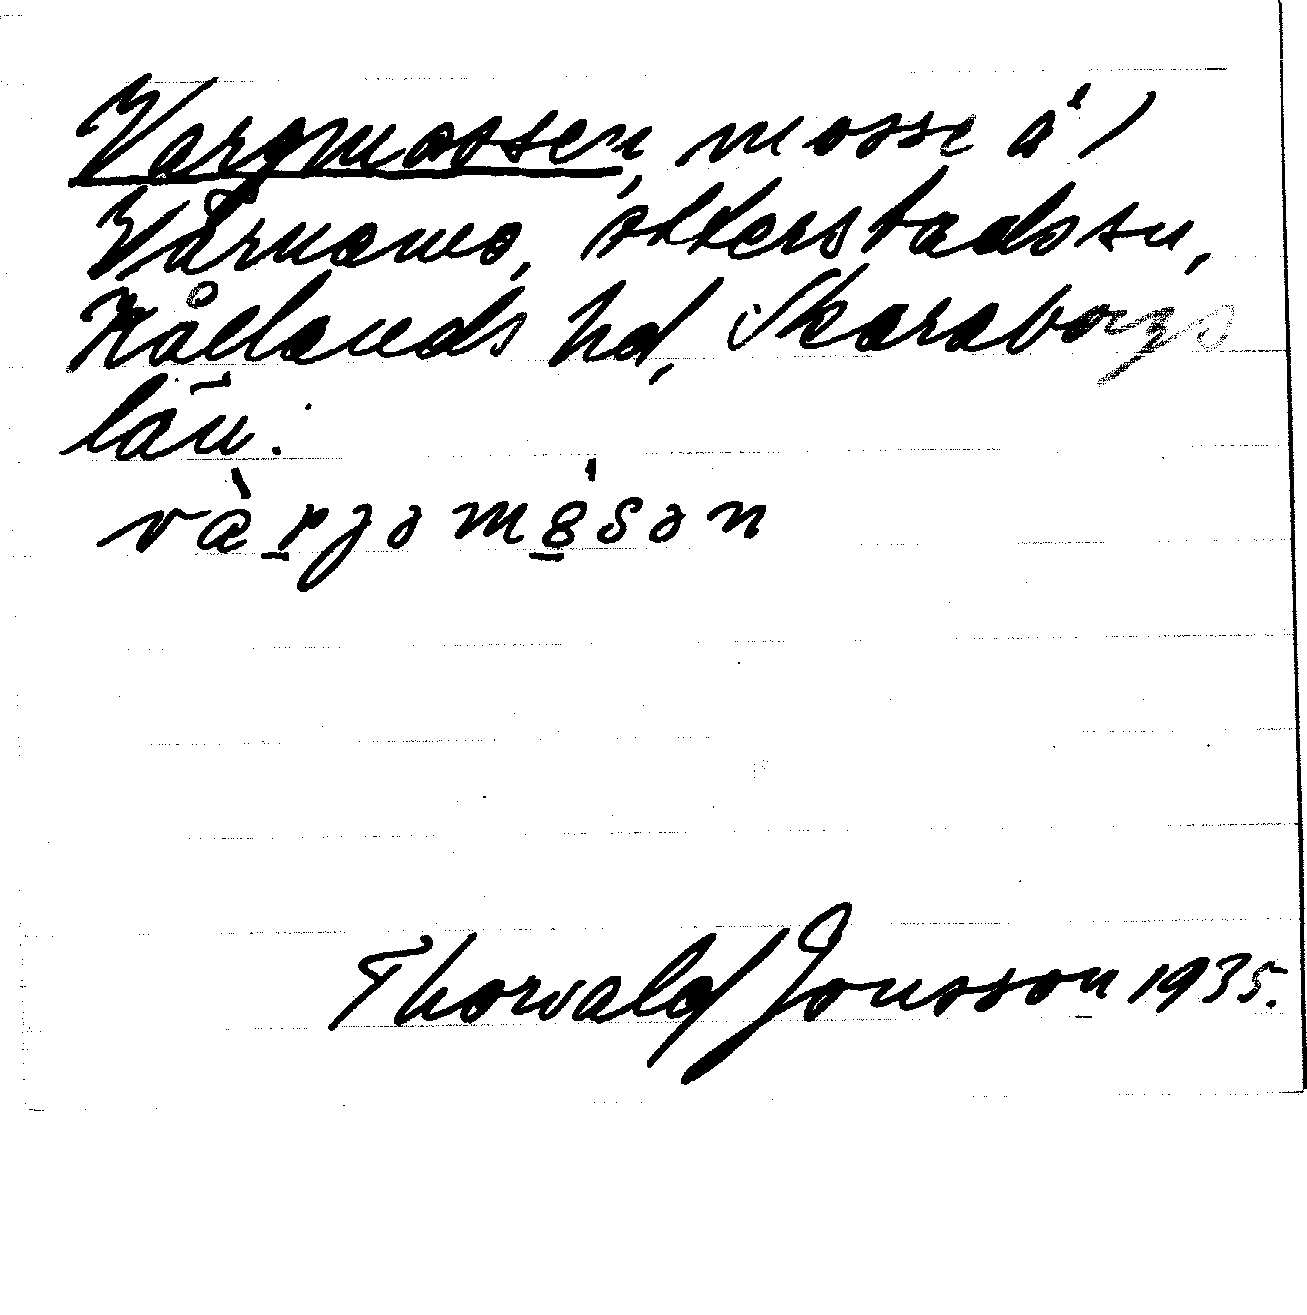 Vargmossen, mosse å /
Vårnamo, Otterstads sn,
Kållands hd, Skaraborgs
län.
Thorvald Jonsson 1935.